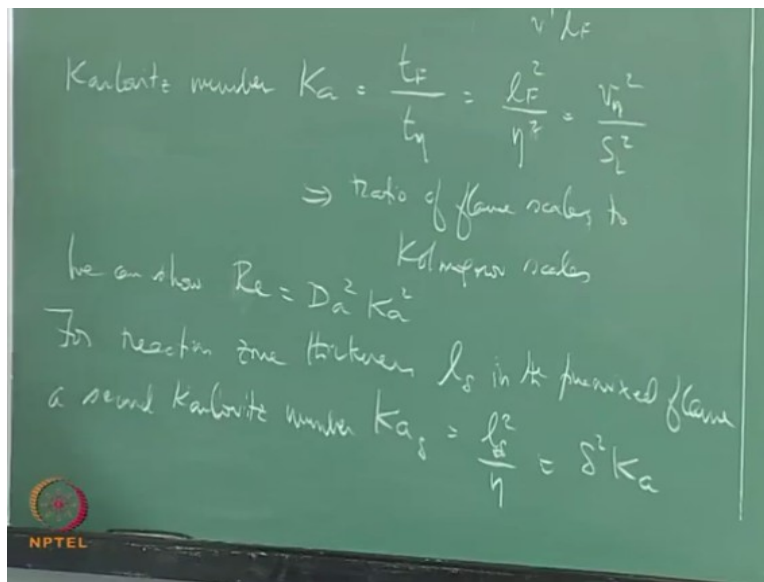 v' l_F
Karlovitz number Ka = t_F / t_η = l_F² / η² = v_η² / S_L²
⇒ ratio of flame scales to
Kolmogorov scales
We can show Re = Da² Ka²
For reaction zone thickness l_δ in the premixed flame
a second Karlovitz number Ka_δ = l_δ² / η = δ² Ka
NPTEL